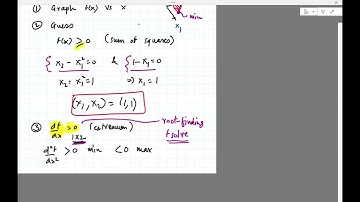 ① Graph f(x) vs x
min
x₁
② Guess
f(x) ≥ 0 (sum of squares)
{ x₂ - x₁² = 0 & { 1 - x₁ = 0
x₂ = x₁² = 1 ⇒ x₁ = 1
(x₁, x₂) = (1,1)
③ df/dx = 0 (extremum) root-finding
1x2 fsolve
d²f/dx² > 0 min < 0 max